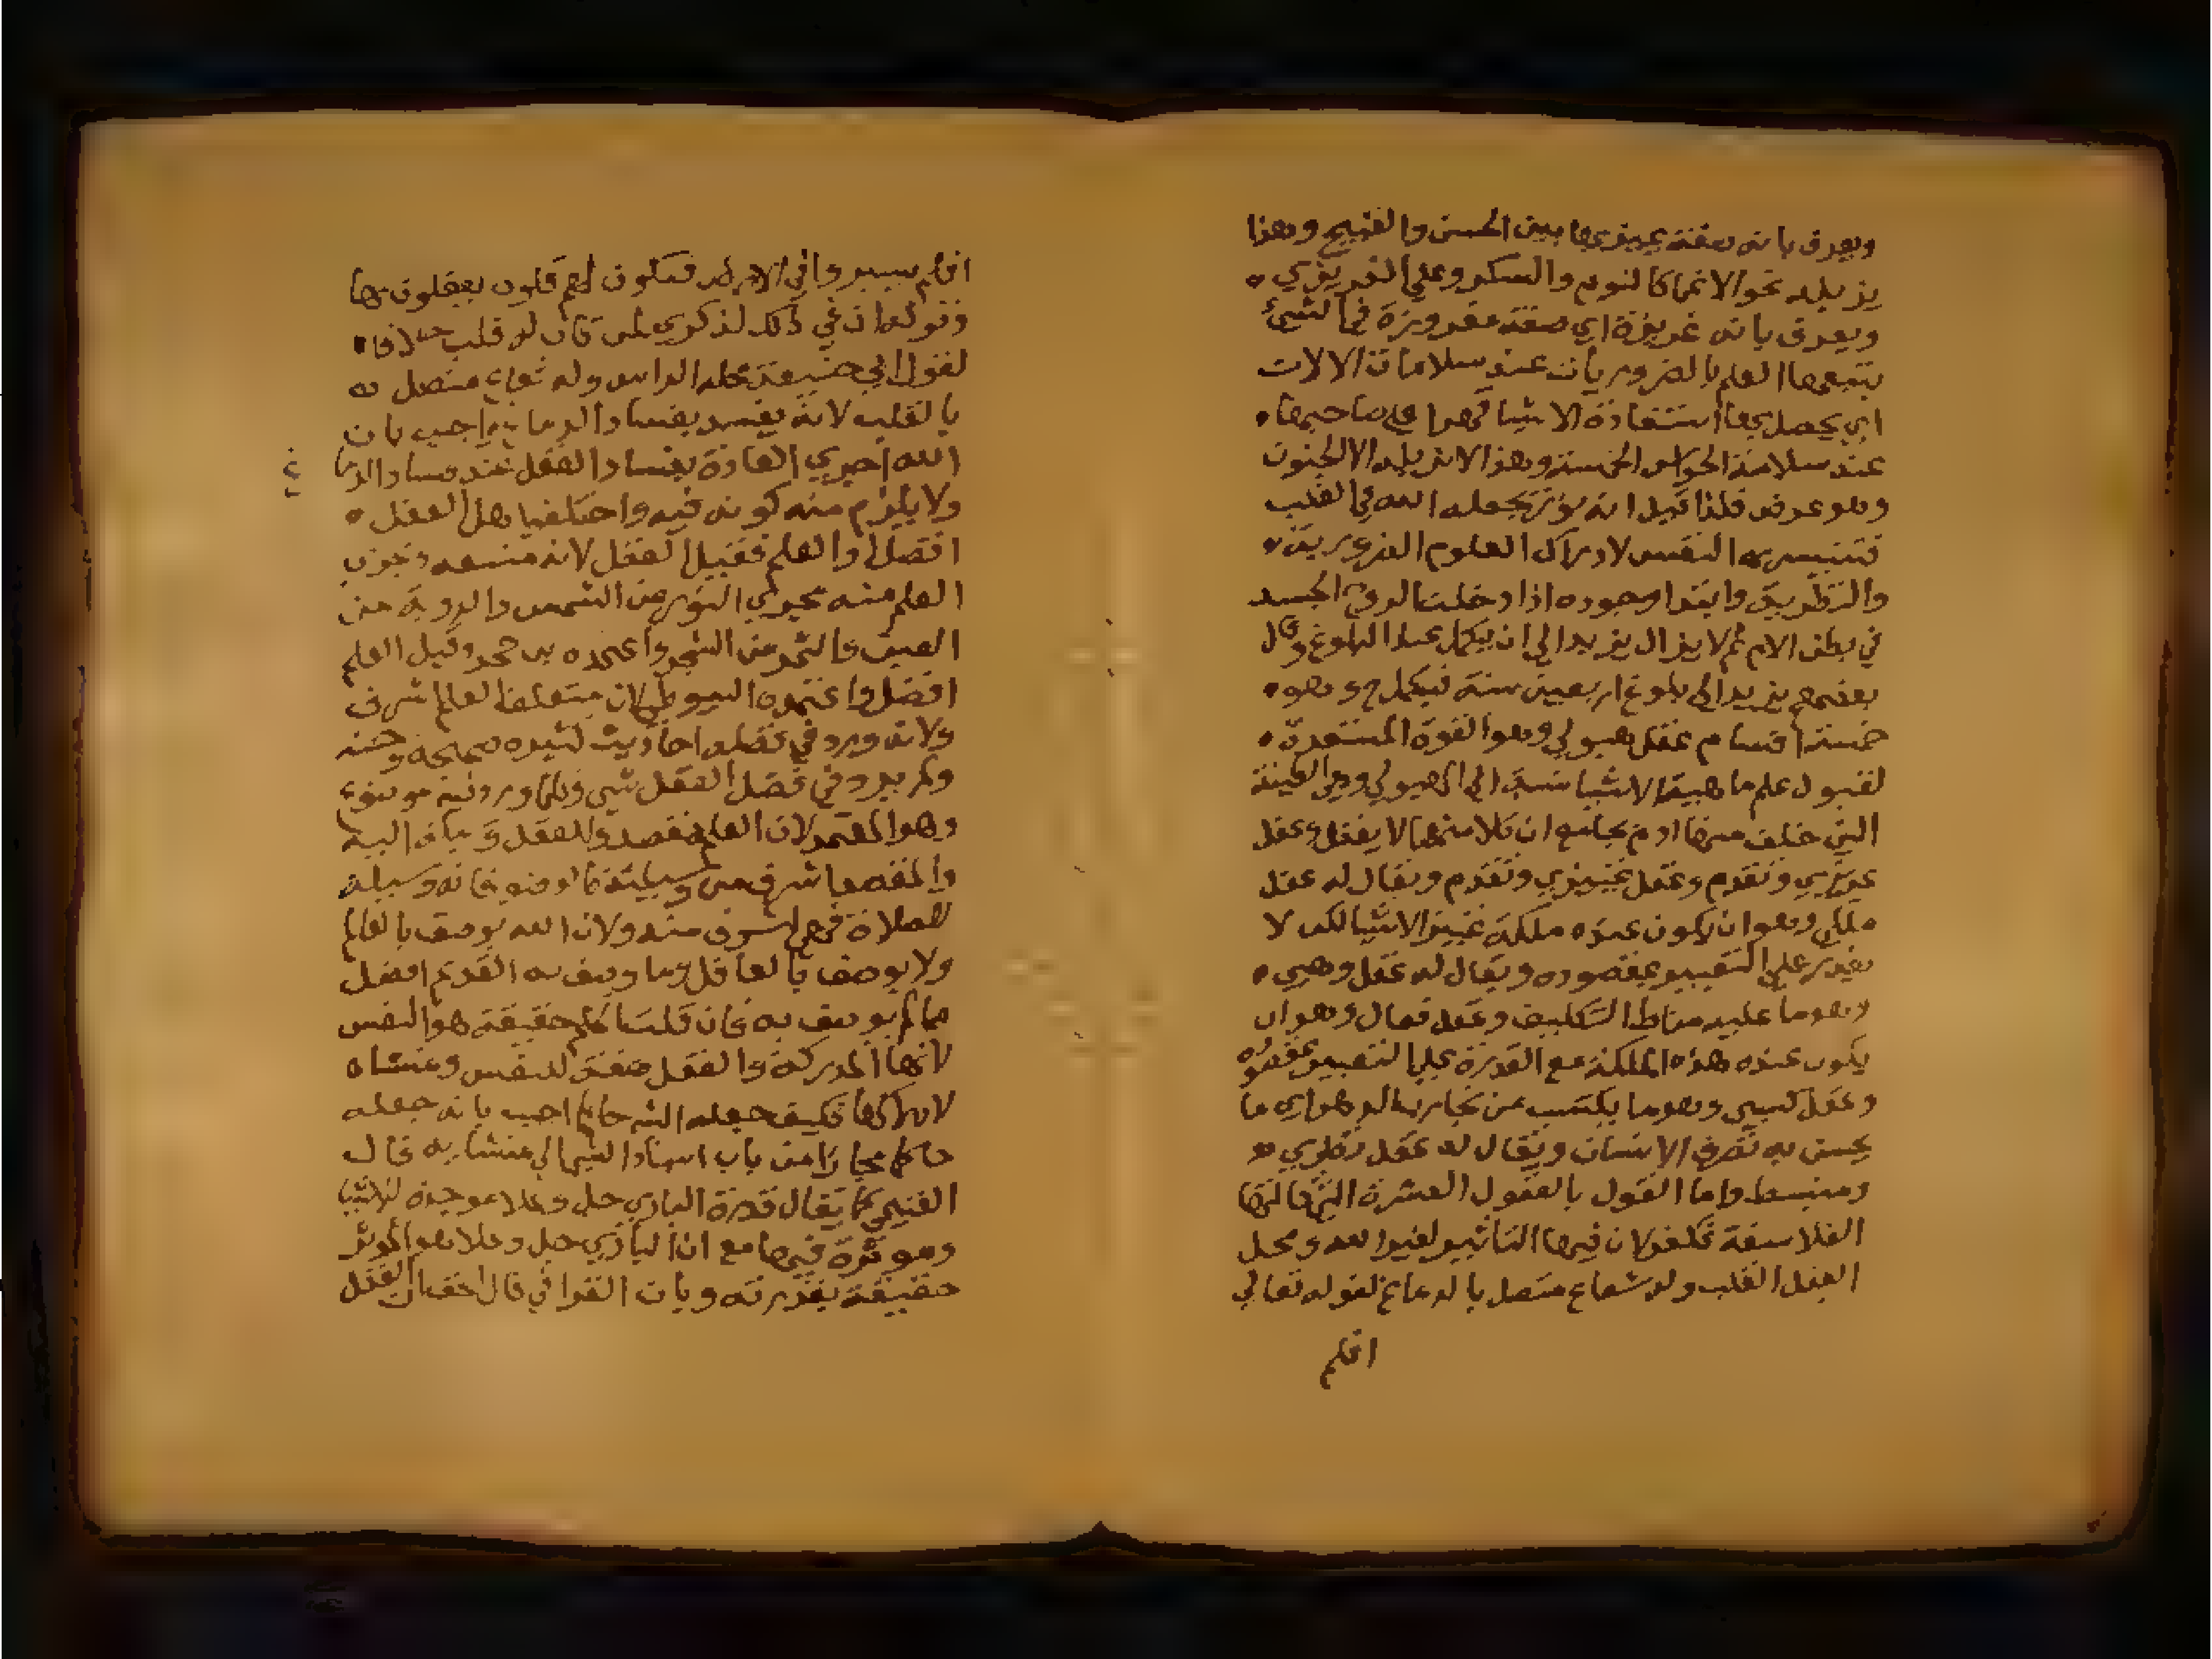 ويعرف بانه صفة يميز بها بين الحسن والقبيح وهذا
يزيله نحو الاغما كالنوم والسكر وعلي الغريزي
ويعرف بانه غريزة اي صفة مغروزة في الشيء
يتبعها العلم بالضروريات عند سلامات الالات
اي يحصل بها استفادة الاشيا قهرا علي صاحبها
عند سلامة الحواس الخمسة وهذا لا يزيله الا الجنون
وهو عرض فلذا قيل انه نور يجعله الله في القلب
فتتيسر به النفس لادراك العلوم الضرورية
والنظرية وابتدا وجوده اذا دخلت الروح الجسد
في بطن الام ثم لا يزال يزيد الي ان يكمل عند البلوغ وقال
بعضهم يزيد الي بلوغ اربعين سنة فيكمل ح وهو
خمسة اقسام عقل هيولي وهو القوة المستعدة
لقبول علم ماهية الاشيا نسبة الي الهيولي وهي الطينة
التي خلق منها ادم بجامع ان كلا منهما لا يعقل وعقل
غريزي وتقدم وعقل تمييزي وتقدم ويقال له عقل
ملكي وهو ان يكون عنده ملكة تمييز الاشيا لكن لا
يقدر علي التعبير بمقصوده ويقال له عقل وهبي
وهو ما عليه مناط التكليف وعقل فعال وهو ان
يكون عنده هذه الملكة مع القدرة علي التعبير بمقصوده
وعقل كسبي وهو ما يكتسب من تجارب الدهر اي ما
يحسن به تصرف الانسان ويقال له عقل نظري
ومنبسط واما القول بالعقول العشرة التي قالتها
الفلاسفة فكفر لان فيها التاثير لغير الله ومحل
العقل القلب وله شعاع متصل بالدماغ لقوله تعالي
افلم
افلم يسيروا في الارض فتكون لهم قلوب يعقلون بها
وقوله ان في ذلك لذكري لمن كان له قلب خلافا
لقول ابي حنيفة محله الراس وله شعاع متصل
بالقلب لانه يفسد بفساد الدماغ واجيب بان
الله اجري العادة بفساد العقل عند فساد الدما
غ
ولا يلزم منه كونه فيه واختلفوا هل العقل
افضل او العلم فقيل العقل لانه منبعه ويجري
العلم منه مجري النور من الشمس والروية من
العين والثمر من الشجر واعتمده بن حجر وقيل العلم
افضل واعتمده السيوطي لان متعلقه العالم اشرف
ولانه ورد في فضله احاديث كثيره صحيحه وحسنه
ولم يرد في فضل العقل شي وكلما ورد فيه موضوع
وهو المعتمد لان العلم مقصد والعقل وسيلة اليه
والمقصد اشرف من وسيلته كالوضو فانه وسيلة
للصلاة فهي اشرف منه ولان الله يوصف بالعالم
ولا يوصف بالعاقل وما وصف به القديم افضل
مما لم يوصف به فان قلت الحاكم حقيقة هو النفس
لانها المدركة والعقل صفة للنفس ومنشا
لادراكها فكيف جعله الشارح حاكما اجيب بانه جعله
حاكما مجازا من باب اسناد الشي الي منشايه قال
الغنيمي كما يقال قدرة الباري جل وعلا موجدة للاشيا
وموثرة فيها مع ان الباري جل وعلا هو الموثر
حقيقة بقدرته وبان القرافي قال حقه ان العقل